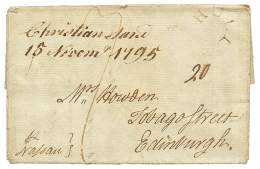 Christian Sand
15 Novem.r 1795
HULL
20
Mrs Howden
Tobago Street
Edinburgh.